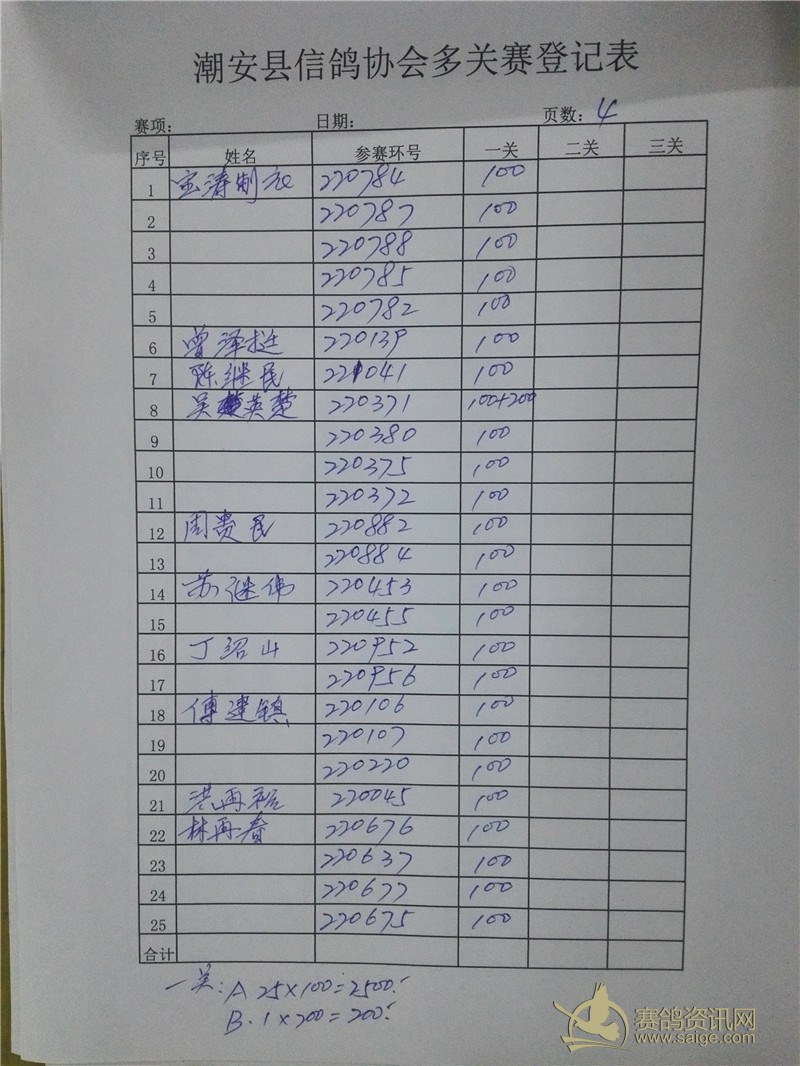 潮安县信鸽协会多关赛登记表
赛项: 日期: 页数: 4
序号 姓名 参赛环号 一关 二关 三关
1 宝涛制衣 220784 100
2 220787 100
3 220788 100
4 220785 100
5 220782 100
6 曾泽挺 220139 100
7 陈继民 221041 100
8 吴英楚 220371 100+200
9 220380 100
10 220375 100
11 220372 100
12 周贵民 220882 100
13 220884 100
14 苏继伟 220453 100
15 220455 100
16 丁绍山 220952 100
17 220956 100
18 傅建镇 220106 100
19 220107 100
20 220220 100
21 洪再裕 220045 100
22 林再春 220676 100
23 220637 100
24 220677 100
25 220675 100
合计
一关: A 25×100=2500.
B. 1×200=200.
赛鸽资讯网
www.saige.com